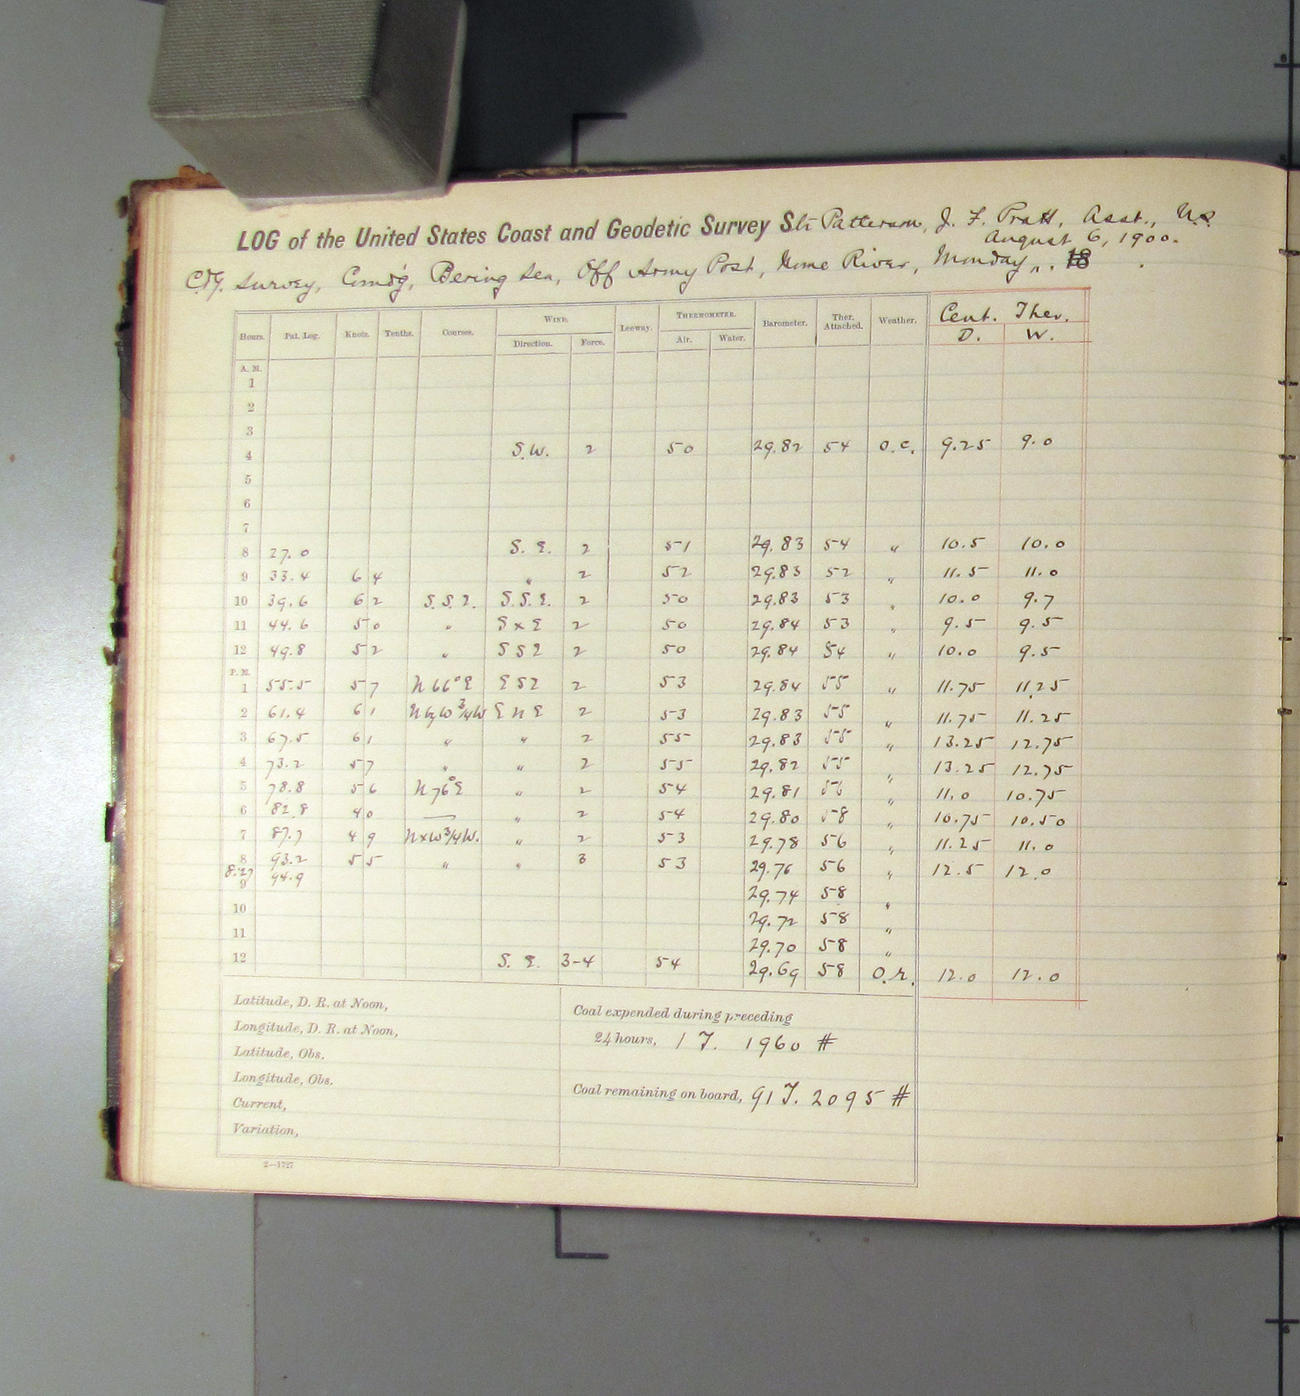 LOG of the United States Coast and Geodetic Survey Str Patterson, J. F. Pratt, Asst., U.S.
August 6, 1900.
C.&G. Survey, Comd'g, Bering Sea, Off Army Post, Nome River, Monday, 18
Hours. Pat. Log. Knots. Tenths. Courses. WIND. Leeway. THERMOMETER. Barometer. Ther. Attached. Weather. Cent. Ther.
Direction. Force. Air. Water. D. W.
A. M.
1
2
3
4 S.W. 2 50 29.82 54 O.C. 9.25 9.0
5
6
7
8 27.0 S.E. 2 51 29.83 54 " 10.5 10.0
9 33.4 6 4 " 2 52 29.83 52 " 11.5 11.0
10 39.6 6 2 S.S.E. S.S.E. 2 50 29.83 53 " 10.0 9.7
11 44.6 5 0 " S x E 2 50 29.84 53 " 9.5 9.5
12 49.8 5 2 " S S E 2 50 29.84 54 " 10.0 9.5
P. M.
1 55.5 5 7 N 66° E E S E 2 53 29.84 55 " 11.75 11.25
2 61.4 6 1 N by W 3/4 W E N E 2 53 29.83 55 " 11.75 11.25
3 67.5 6 1 " " 2 55 29.83 55 " 13.25 12.75
4 73.2 5 7 " " 2 55 29.82 55 " 13.25 12.75
5 78.8 5 6 N 76° E " 2 54 29.81 " 11.0 10.75
6 82.8 4 0 — " 2 54 29.80 58 " 10.75 10.50
7 87.7 4 9 N x W 3/4 W. " 2 53 29.78 56 " 11.25 11.0
8 93.2 5 5 " " 3 53 29.76 56 " 12.5 12.0
8.27 94.9
9 29.74 58 "
10 29.72 58 "
11 29.70 58 "
12 S.E. 3-4 54 29.69 58 O.R. 12.0 12.0
Latitude, D. R. at Noon,
Longitude, D. R. at Noon,
Latitude, Obs.
Longitude, Obs.
Current,
Variation,
Coal expended during preceding
24 hours, 1 T. 1960 #
Coal remaining on board, 91 T. 2095 #
2—1727